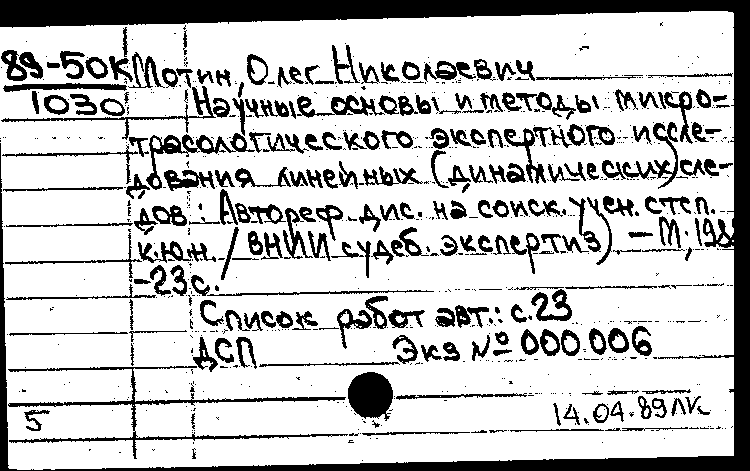 89-50К Мотин, Олег Николаевич
1030 Научные основы и методы микро-
трасологического экспертного иссле-
дования линейных (динамических) сле-
дов: Автореф. дис. на соиск. учен. степ.
к.ю.н. / ВНИИ судеб. экспертиз). – М., 198
-23 с.
Список работ авт.: с.23
ДСП Экз № 000 006
5 14.04.89 ЛК